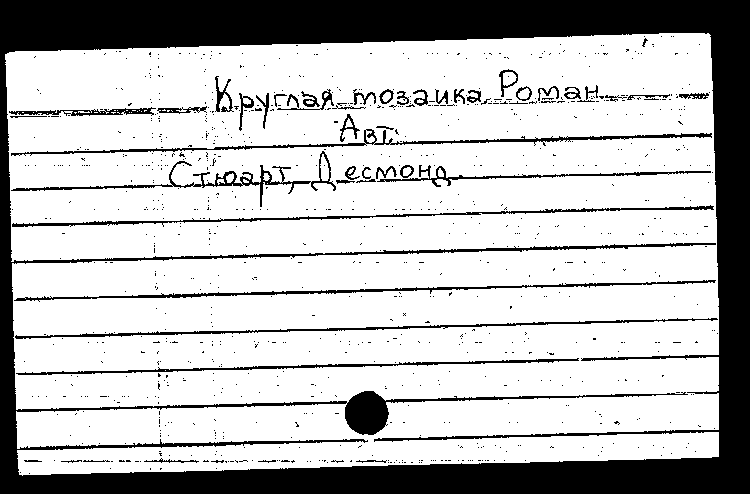 Круглая мозаика. Роман
Авт.:
Стюарт, Десмонд.